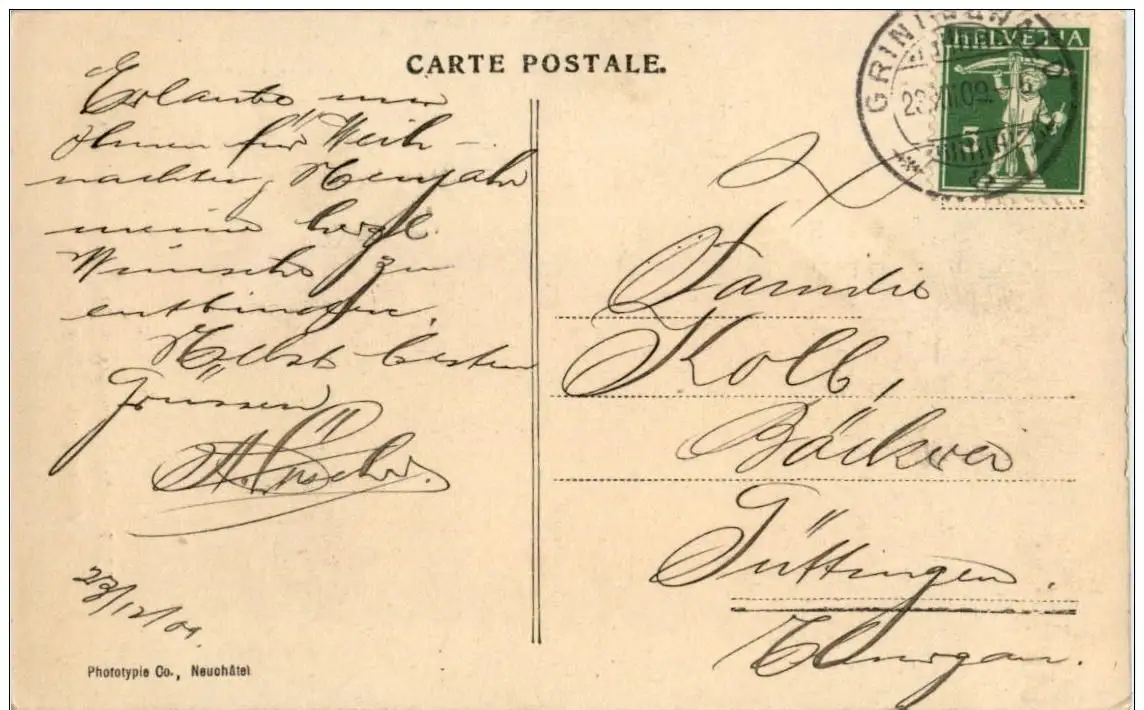 CARTE POSTALE.
GRINDELWALD
23.XII.09
HELVETIA
5
Erlaube mir
Ihnen für Weih-
nachten, Neujahr
meine herzl.
Wünsche zu
entbinden.
Nebst besten
Grüssen
23/12/09.
Familie
Kolb,
Bäckerei
Güttingen.
Thurgau.
Phototypie Co., Neuchâtel